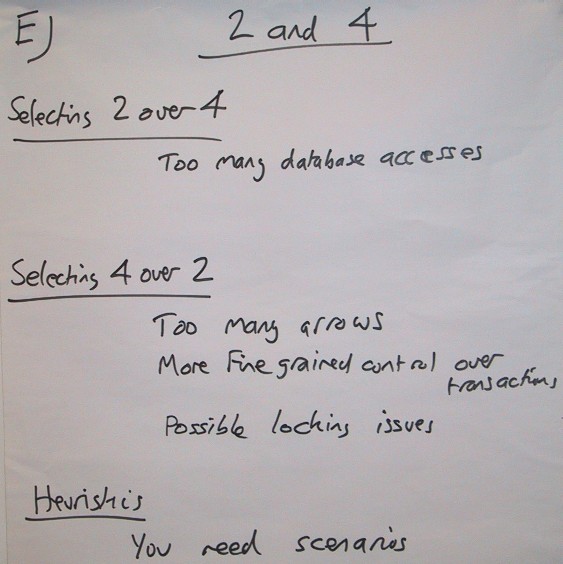 E) 2 and 4
Selecting 2 over 4
Too many database accesses
Selecting 4 over 2
Too many arrows
More Fine grained control over
transactions
Possible locking issues
Heuristics
You need scenarios